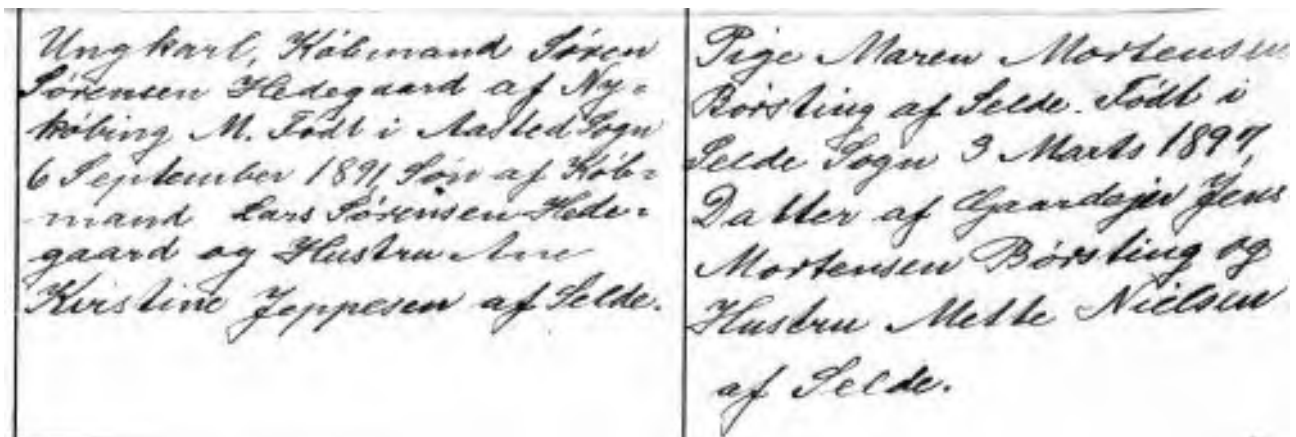 Ungkarl, Købmand Søren
Sørensen Hedegaard af Ny-
købing M. Født i Aasted Sogn
6 September 1891, Søn af Køb-
mand Lars Sørensen Hede-
gaard og Hustru Ane
Kirstine Jeppesen af Selde.
Pige Maren Mortensen
Børsting af Selde. Født i
Selde Sogn 3 Marts 1897,
Datter af Gaardejer Jens
Mortensen Børsting og
Hustru Mette Nielsen
af Selde.